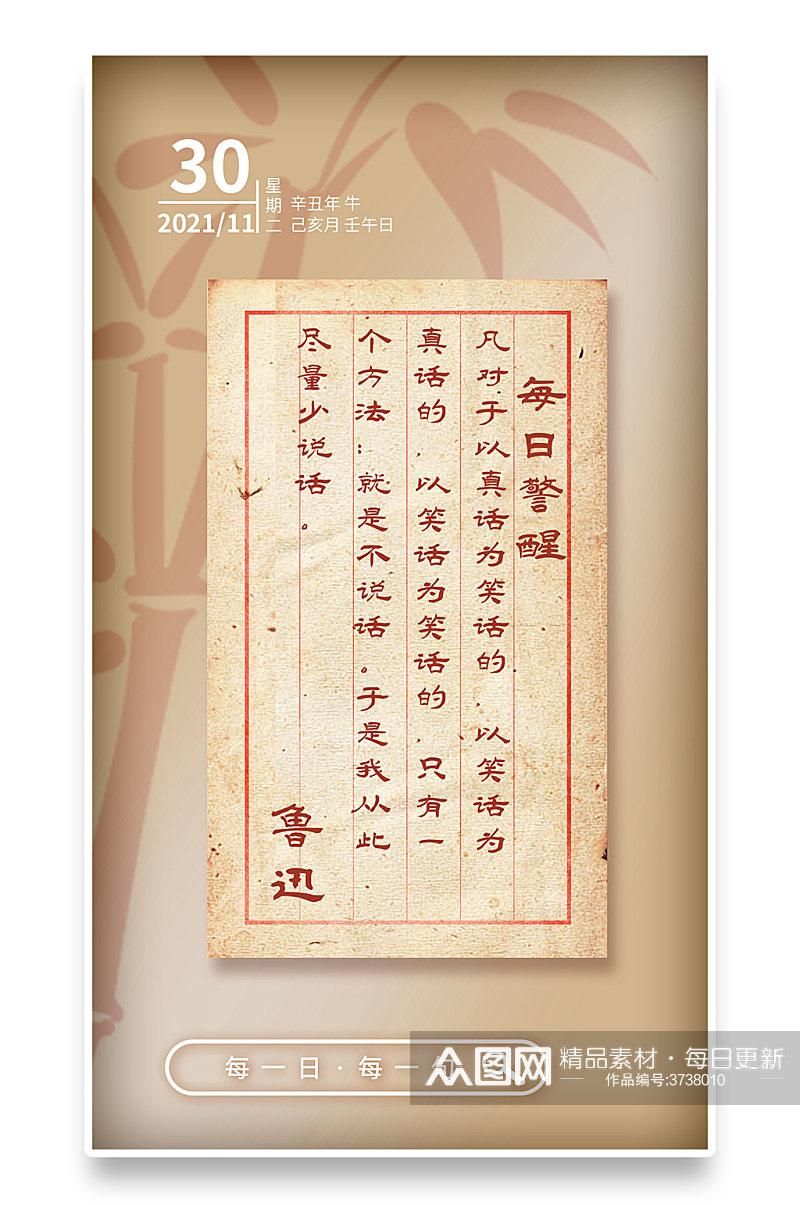 30
2021/11
星期二
辛丑年 牛
己亥月 壬午日
每日警醒
凡对于以真话为笑话的，以笑话为
真话的，以笑话为笑话的，只有一
个方法：就是不说话。于是我从此
尽量少说话。
鲁迅
每一日·每一
众图网
精品素材·每日更新
作品编号:3738010